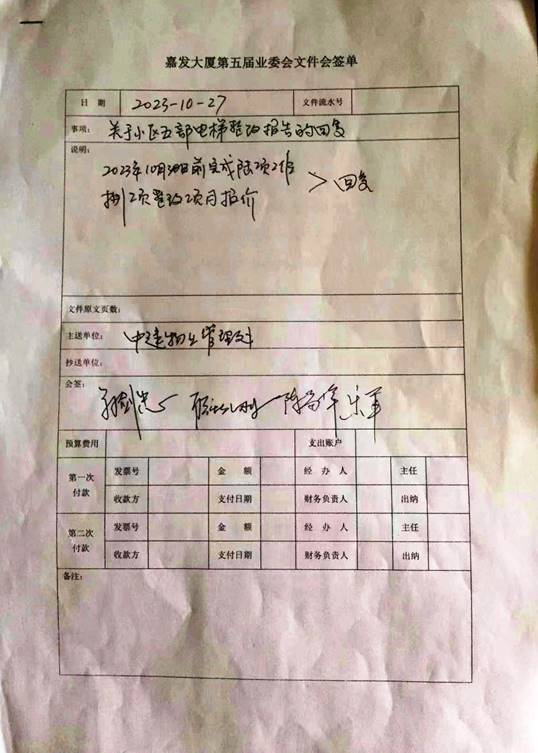 嘉发大厦第五届业委会文件会签单
日 期 2023-10-27 文件流水号
事项: 关于小区五部电梯整改报告的回复
说明:
2023年10月30日前完成陆项工作 > 回复
捌项整改项目报价
文件原文页数:
主送单位: 中建物业管理处
抄送单位:
会签:
预算费用 支出账户
第一次付款 发票号 金 额 经 办 人 主任
收款方 支付日期 财务负责人 出纳
第二次付款 发票号 金 额 经 办 人 主任
收款方 支付日期 财务负责人 出纳
备注: